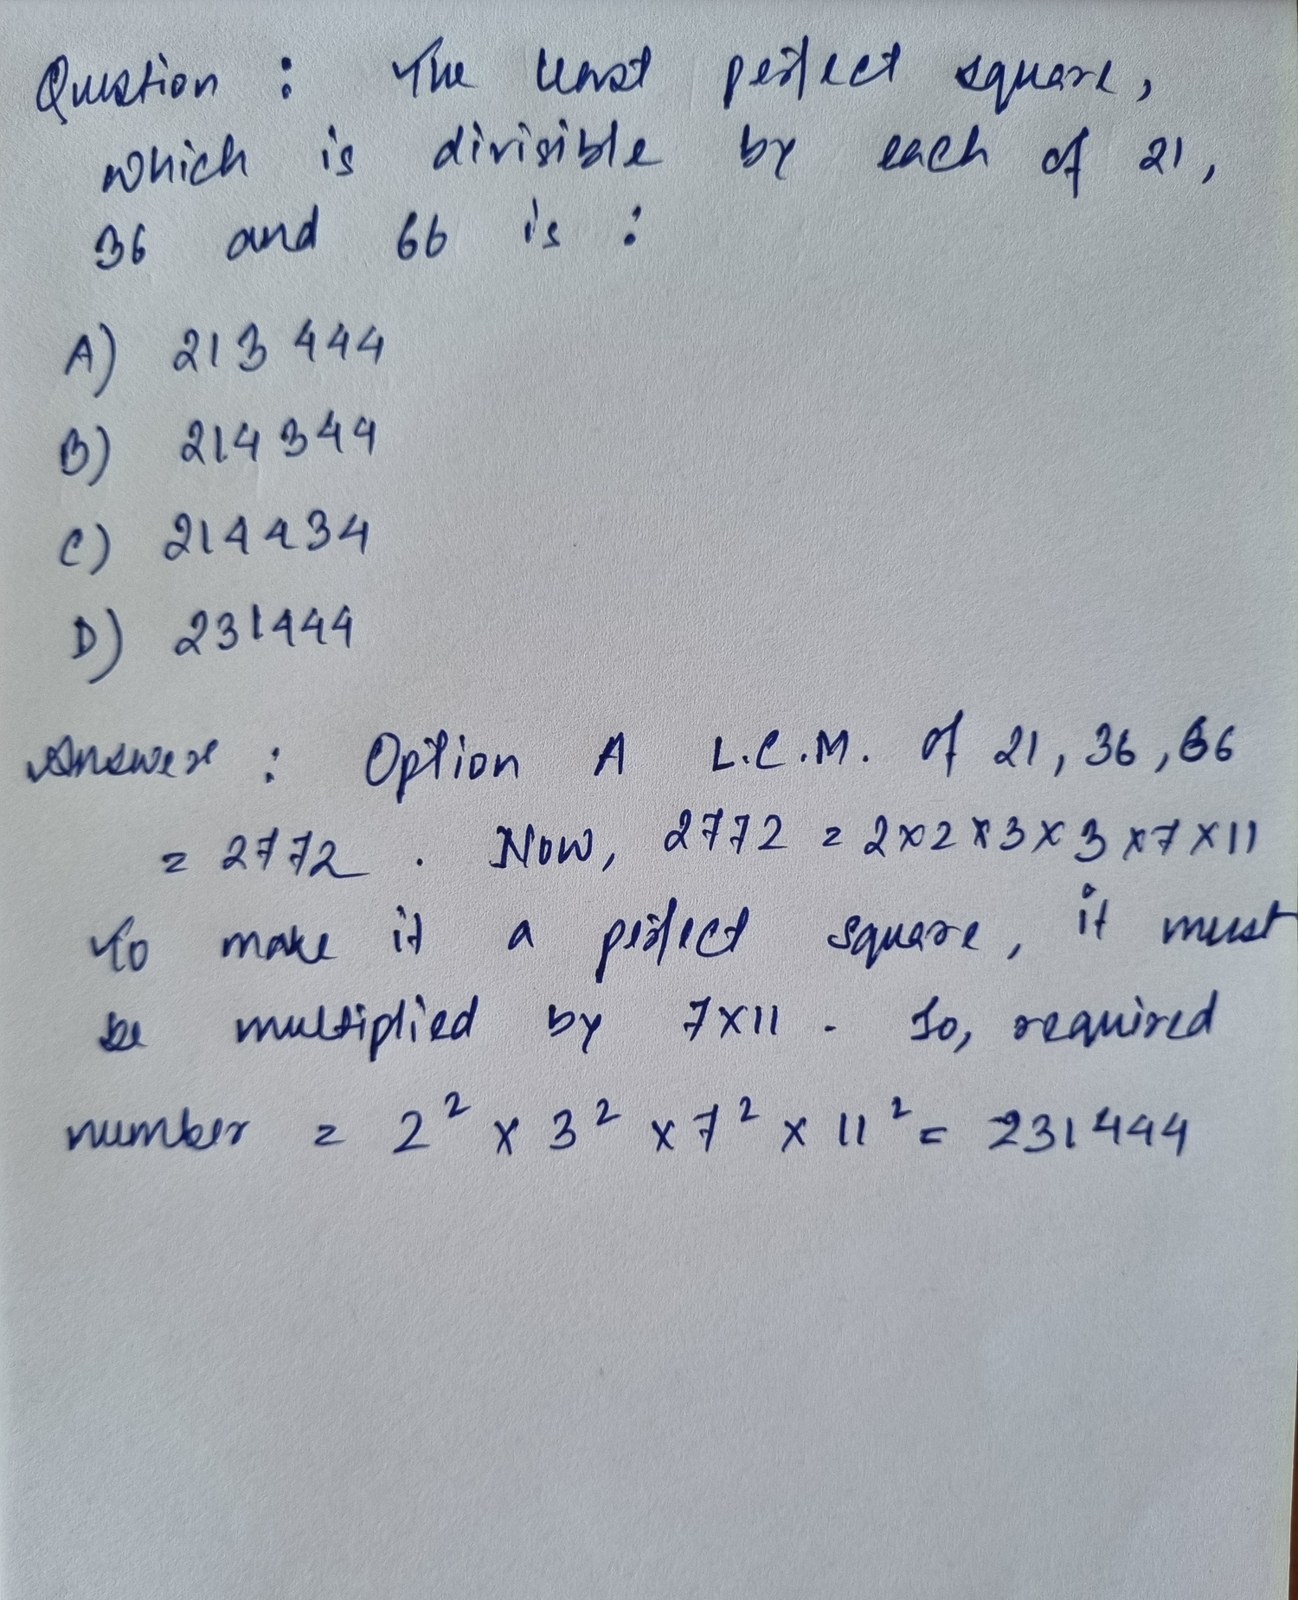 Question : The least perfect square,
which is divisible by each of 21,
36 and 66 is :
A) 213 444
B) 214344
C) 214434
D) 231444
Answer : Option A L.C.M. of 21, 36, 66
= 2772 . Now, 2772 = 2×2×3×3×7×11
To make it a perfect square, it must
be multiplied by 7×11 . So, required
number = 2² × 3² × 7² × 11² = 231444